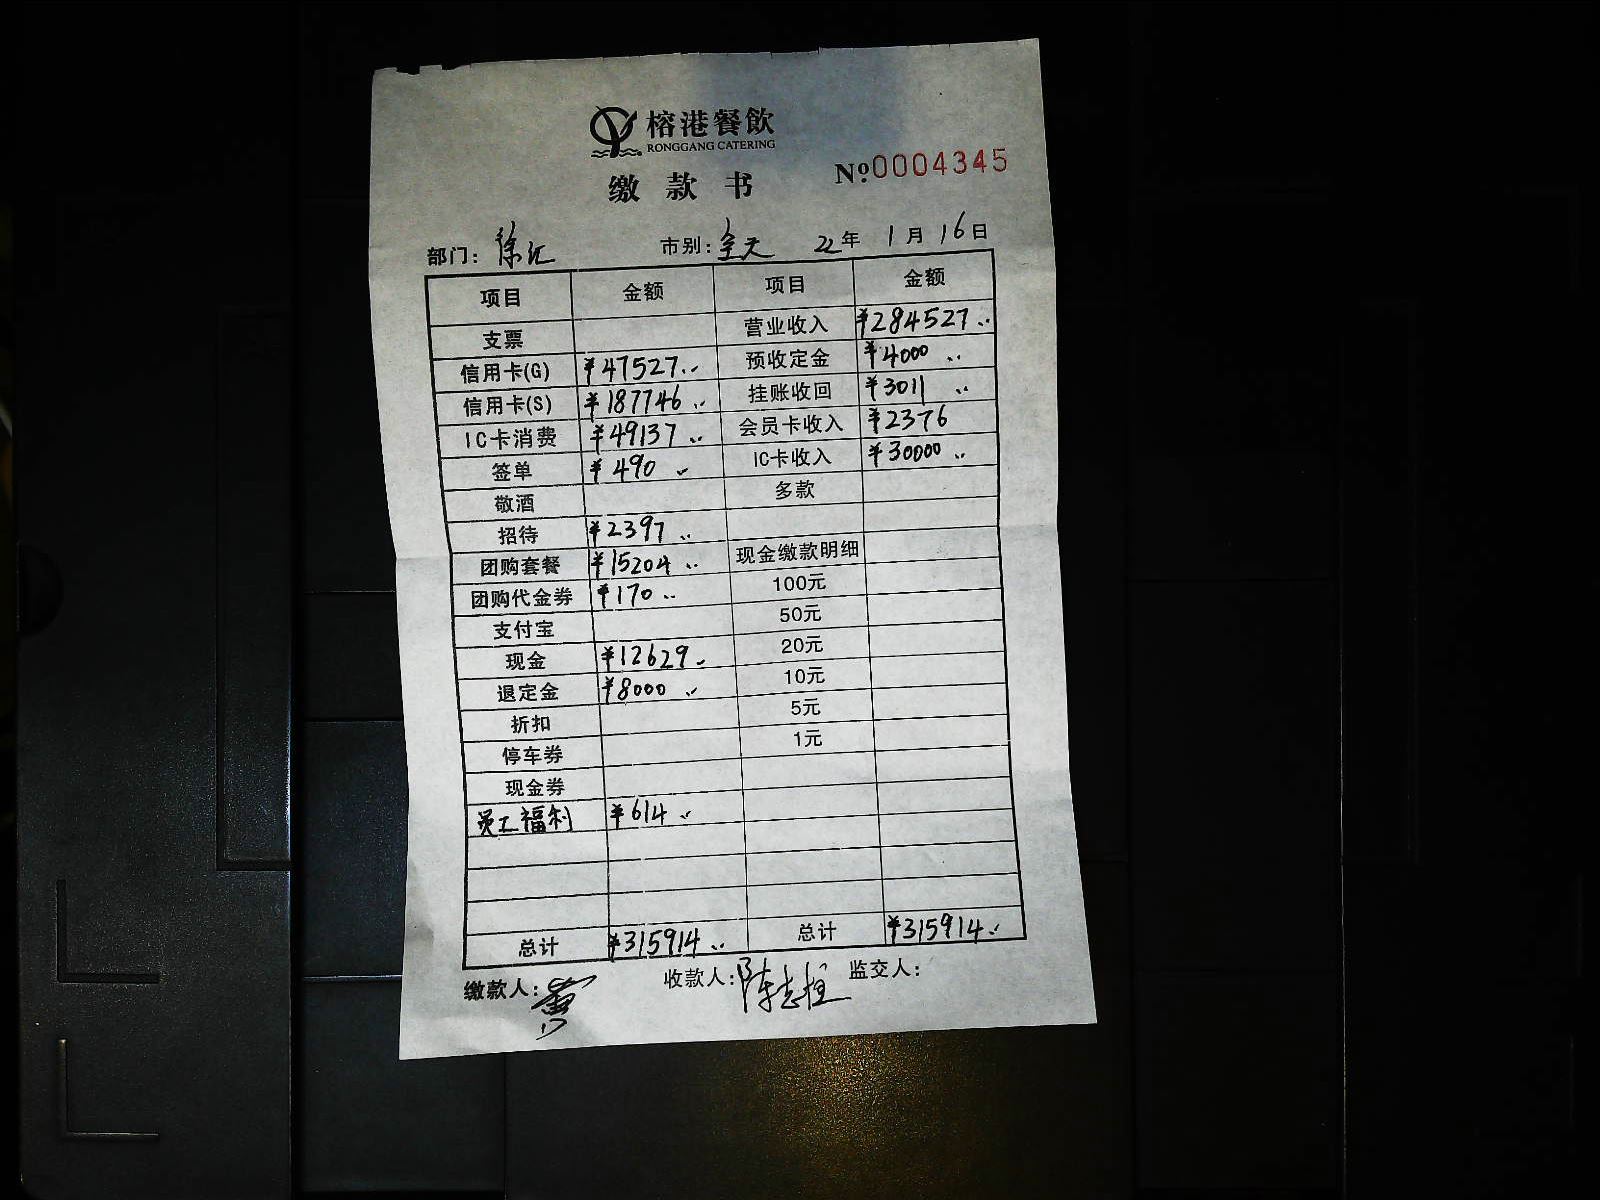 榕港餐飲
RONGGANG CATERING
缴款书 №0004345
部门: 徐汇 市别: 全天 22年 1月 16日
项目 金额 项目 金额
支票 营业收入 ¥284527
信用卡(G) ¥47527 预收定金 ¥4000
信用卡(S) ¥187746 挂账收回 ¥3011
IC卡消费 ¥49137 会员卡收入 ¥2376
签单 ¥490 IC卡收入 ¥30000
敬酒 多款
招待 ¥2397
团购套餐 ¥15204 现金缴款明细
团购代金券 ¥170 100元
支付宝 50元
现金 ¥12629 20元
退定金 ¥8000 10元
折扣 5元
停车券 1元
现金券
员工福利 ¥614
总计 ¥315914 总计 ¥315914
缴款人: 收款人: 陈志 监交人: